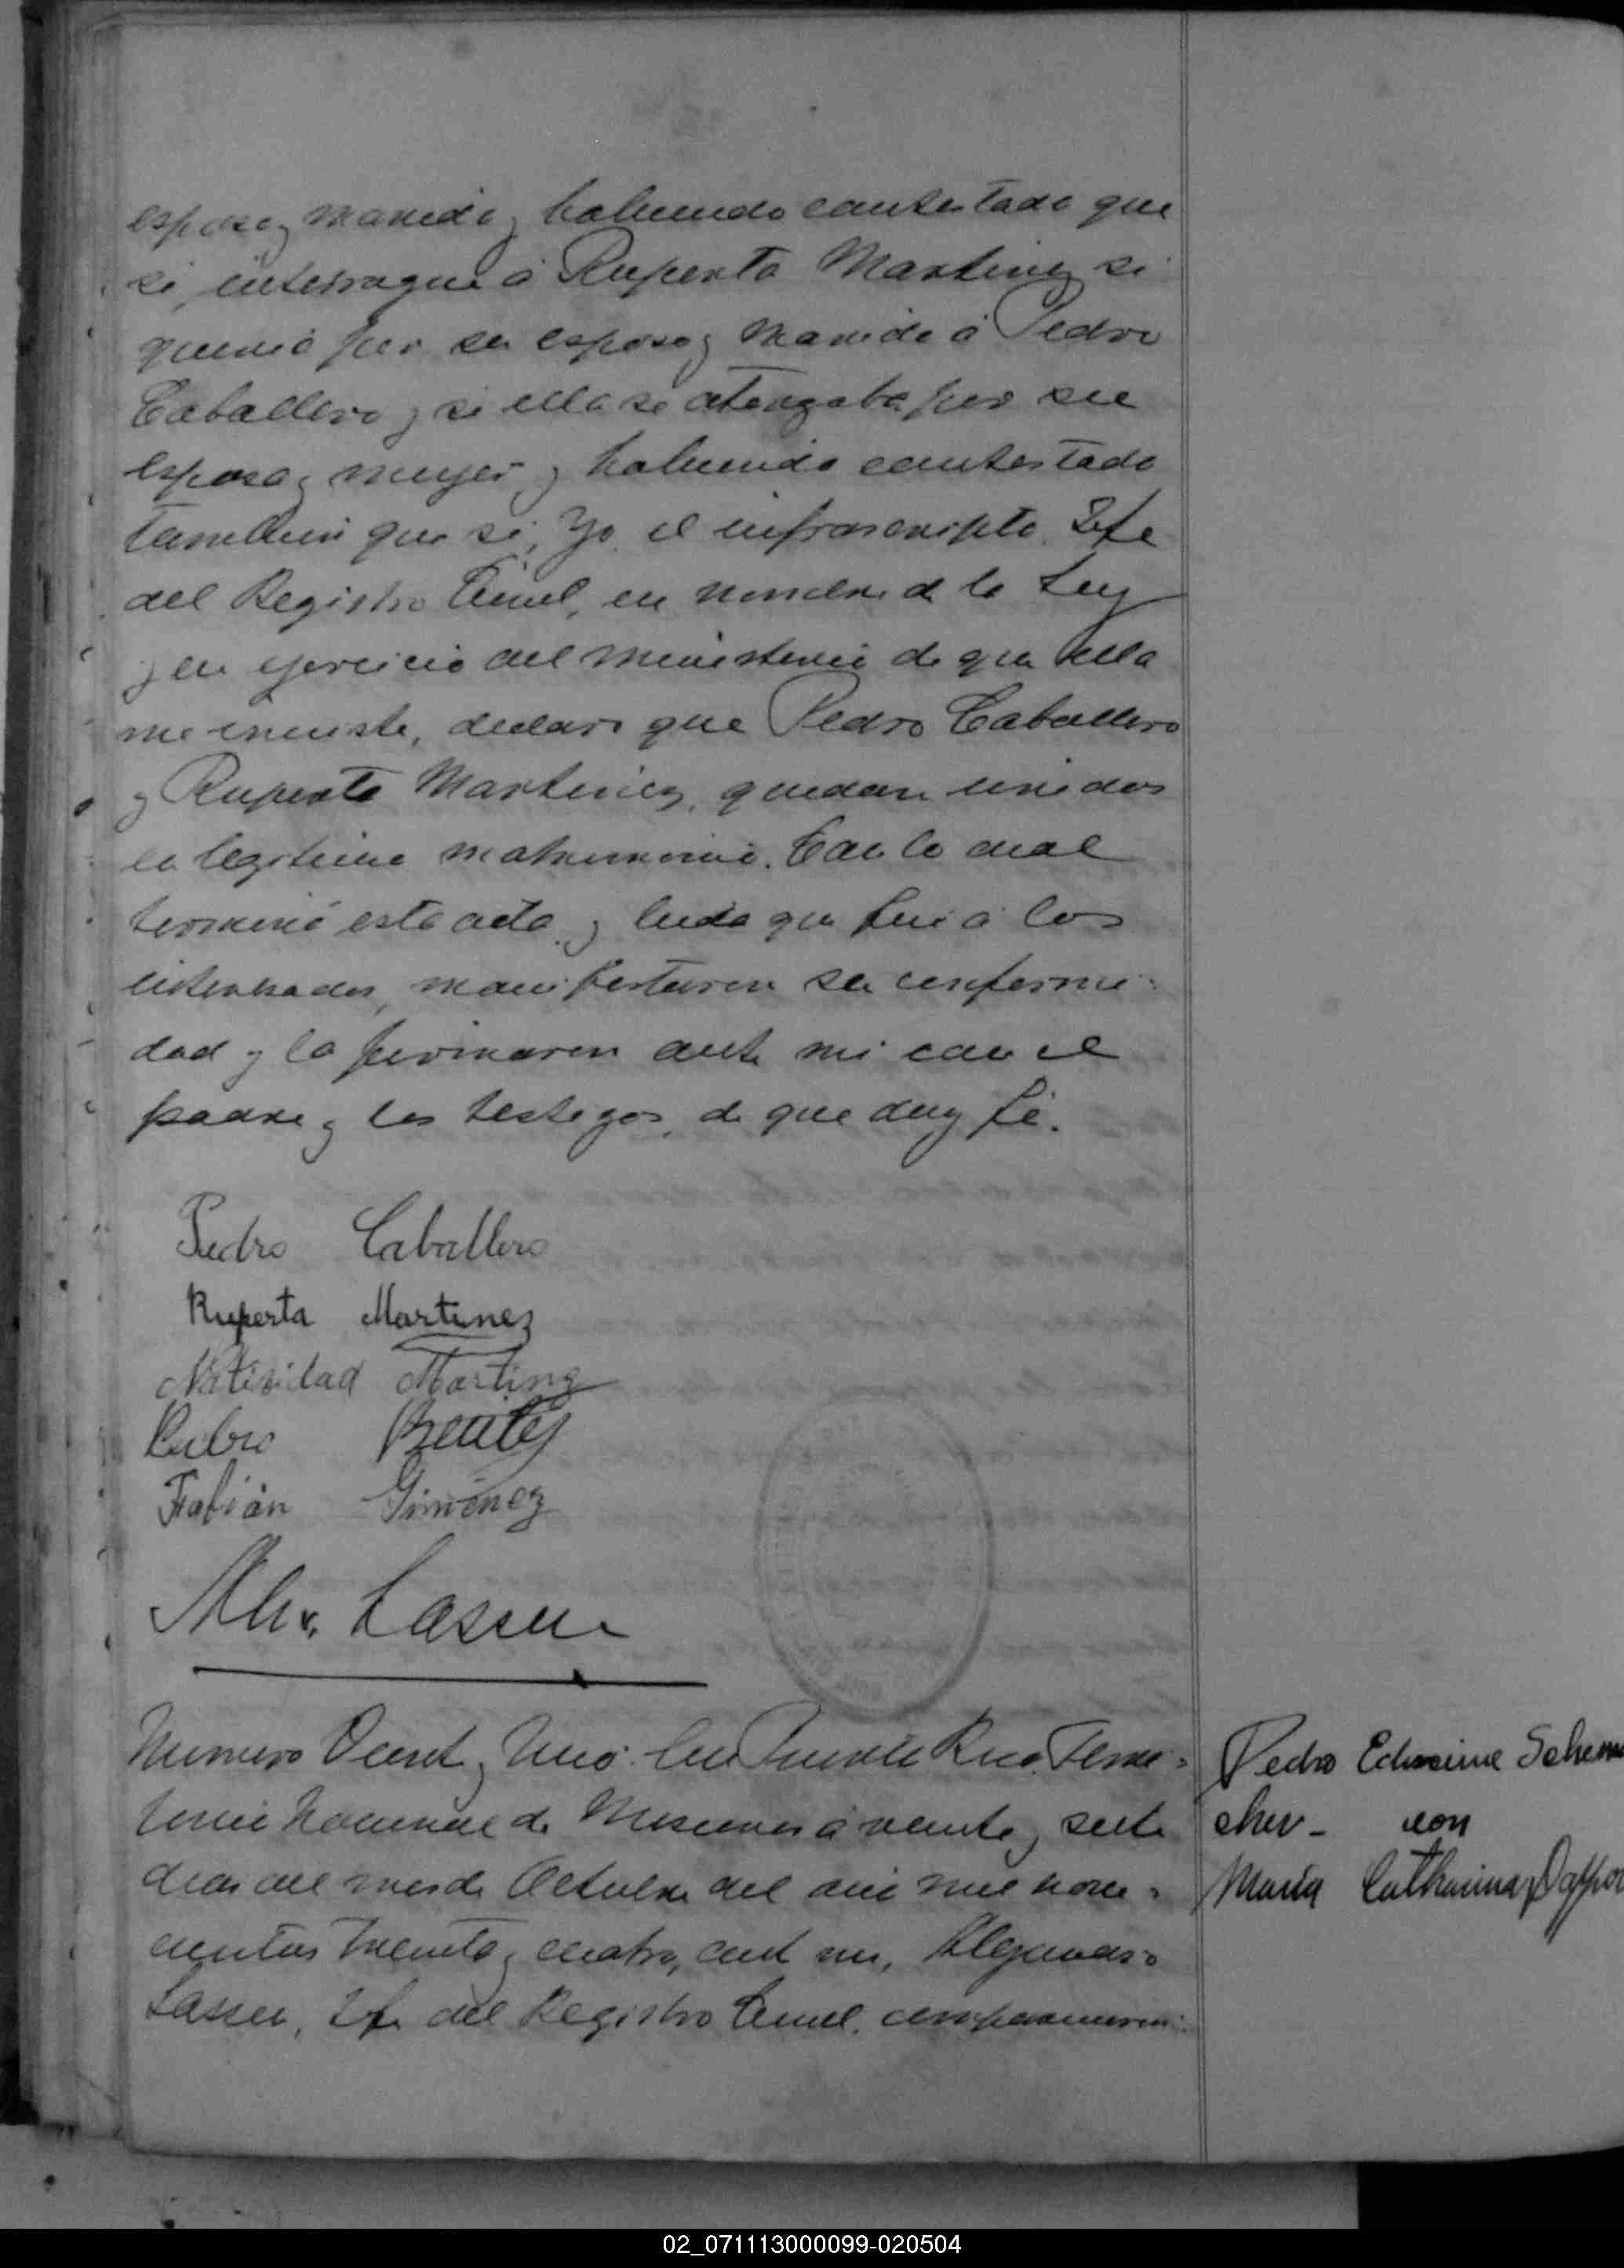 esposo y marido y habiendo contestado que
si, interrogué á Ruperta Martinez si
queria por su esposo y marido á Pedro
Caballero y si ella se otorgaba por su
esposa y mujer y habiendo contestado
tambien que si, Yo el infrascripto Jefe
del Registro Civil, en nombre de la Ley
y en ejercicio del ministerio de que ella
me inviste, declaro que Pedro Caballero
y Ruperta Martinez, quedan unidos
en legitimo matrimonio. Con lo cual
terminó esta acta y leida que fué á los
interesados, manifestaron su conformi-
dad y la firmaron ante mi con el
padre y los testigos, de que doy fé.
Pedro Caballero
Ruperta Martinez
Natividad Martinez
Benitez
Fabián Gimenez
Alex. Lassen
Numero Veinte y Uno: En Puerto Rico, Terri-
torio Nacional de Misiones á veinte y siete
dias del mes de Octubre del año mil nove-
cientos treinta y cuatro, ante mi, Alejandro
Lassen, Jefe del Registro Civil, comparecieron:
Pedro
cher - con
Maria Catharina
02_071113000099-020504